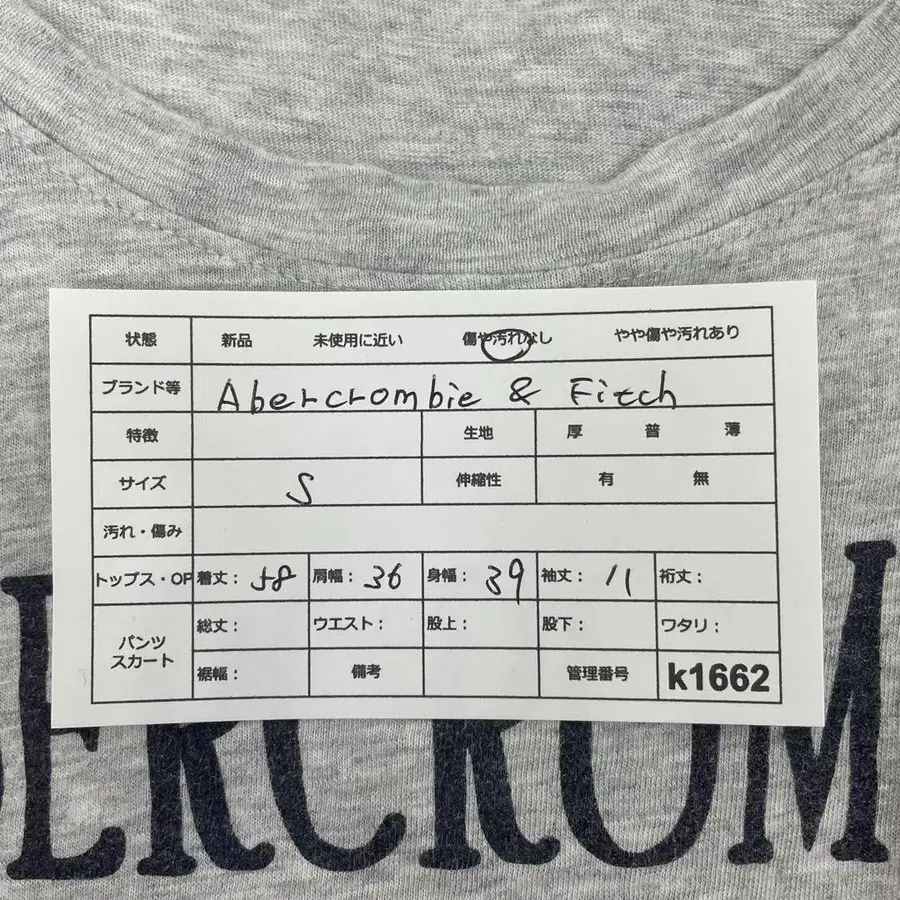 状態 新品 未使用に近い 傷や汚れなし やや傷や汚れあり
ブランド等 Abercrombie & Fitch
特徴 生地 厚 普 薄
サイズ S 伸縮性 有 無
汚れ・傷み
トップス・OP 着丈: 58 肩幅: 36 身幅: 39 袖丈: 11 裄丈:
パンツ スカート 総丈: ウエスト: 股上: 股下: ワタリ:
裾幅: 備考 管理番号 k1662
ERCROM